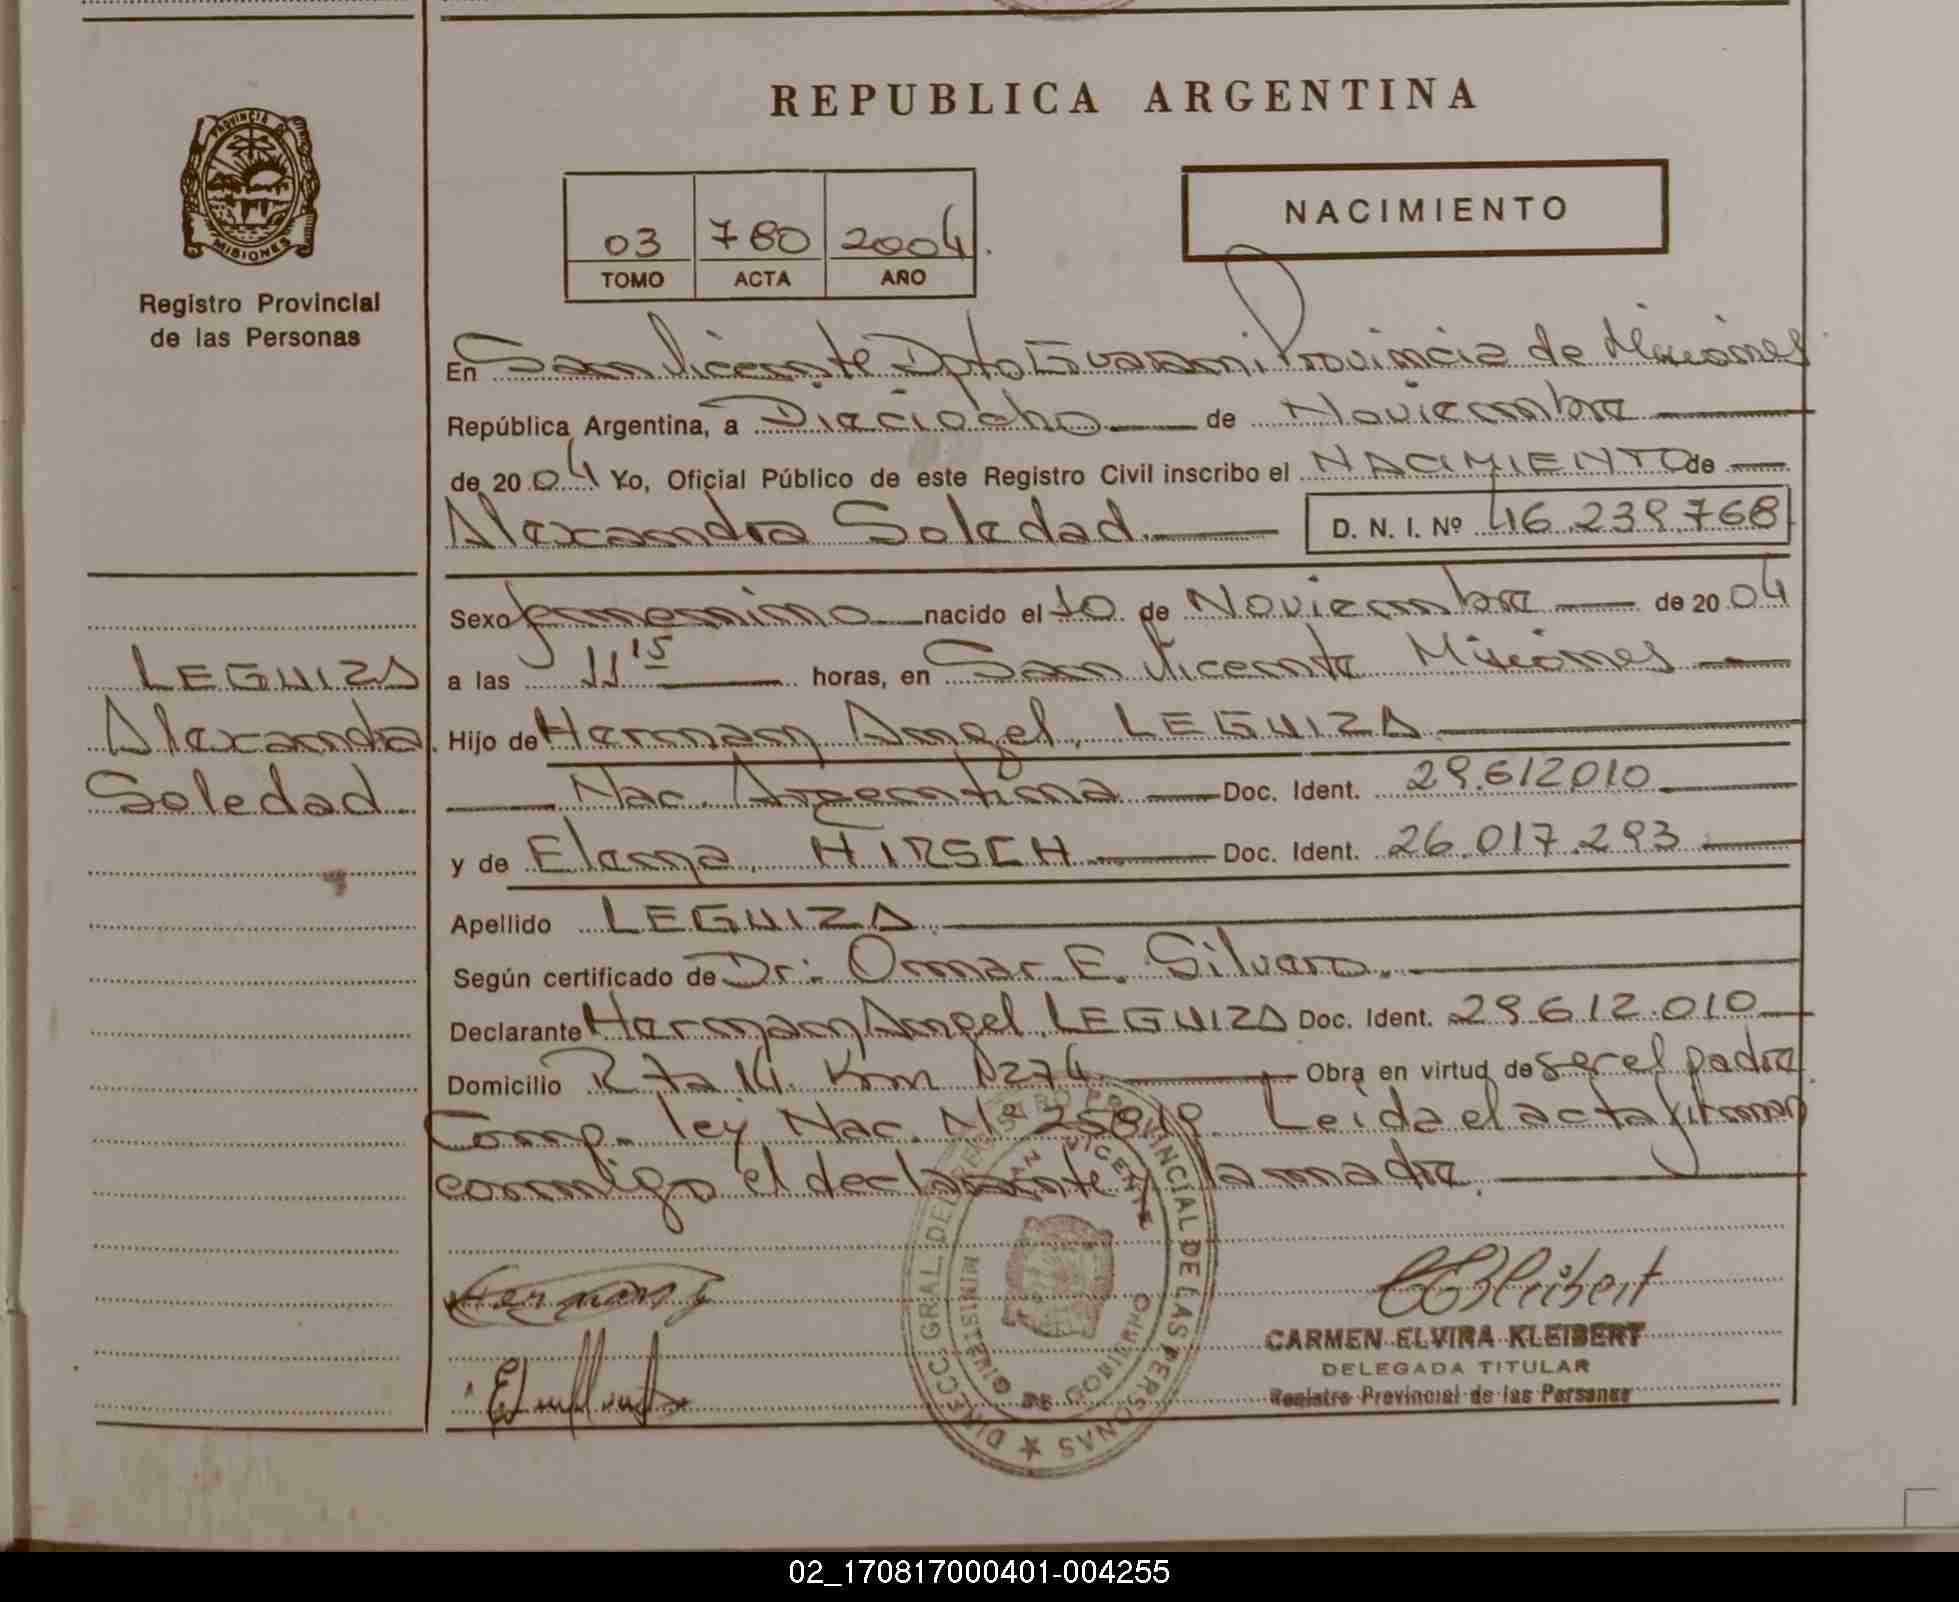 REPUBLICA ARGENTINA
PROVINCIA DE
MISIONES
Registro Provincial
de las Personas
03 780 2004
TOMO ACTA AÑO
NACIMIENTO
En San Vicente Dpto Guaraní Provincia de Misiones
República Argentina, a Dieciocho de Noviembre
de 20 04 Yo, Oficial Público de este Registro Civil inscribo el NACIMIENTO de
Alexandra Soledad. D. N. I. Nº 46.239.768
Sexo femenino nacido el 10 de Noviembre de 20 04
a las 11 15 horas, en San Vicente Misiones
LEGUIZA
Alexandra
Soledad
Hijo de Hernan Angel LEGUIZA
Nac. Argentina Doc. Ident. 29.612010
y de Elena HIRSCH Doc. Ident. 26.017.293
Apellido LEGUIZA
Según certificado de Dr: Omar E. Silvero.
Declarante Hernan Angel LEGUIZA Doc. Ident. 29612.010
Domicilio Rta 14 Km 1274 Obra en virtud de ser el padre
Comp. ley Nac. Nº 25819 Leida el acta firman
conmigo el declarante y la madre.
DIRECC. GRAL. DEL REGISTRO PROVINCIAL DE LAS PERSONAS
SAN VICENTE
MINISTERIO DE GOBIERNO
Hernan
CEKleibert
CARMEN ELVIRA KLEIBERT
DELEGADA TITULAR
Registro Provincial de las Personas
02_170817000401-004255